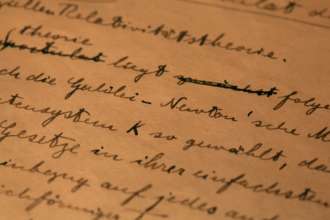 ellen Relativitätstheorie.
theorie
liegt folg
ch die Galilei-Newton'sche M
tensystem K so gewählt, da
Gesetze in ihrer einfachsten
in bezug auf jedes and
ichförmiger